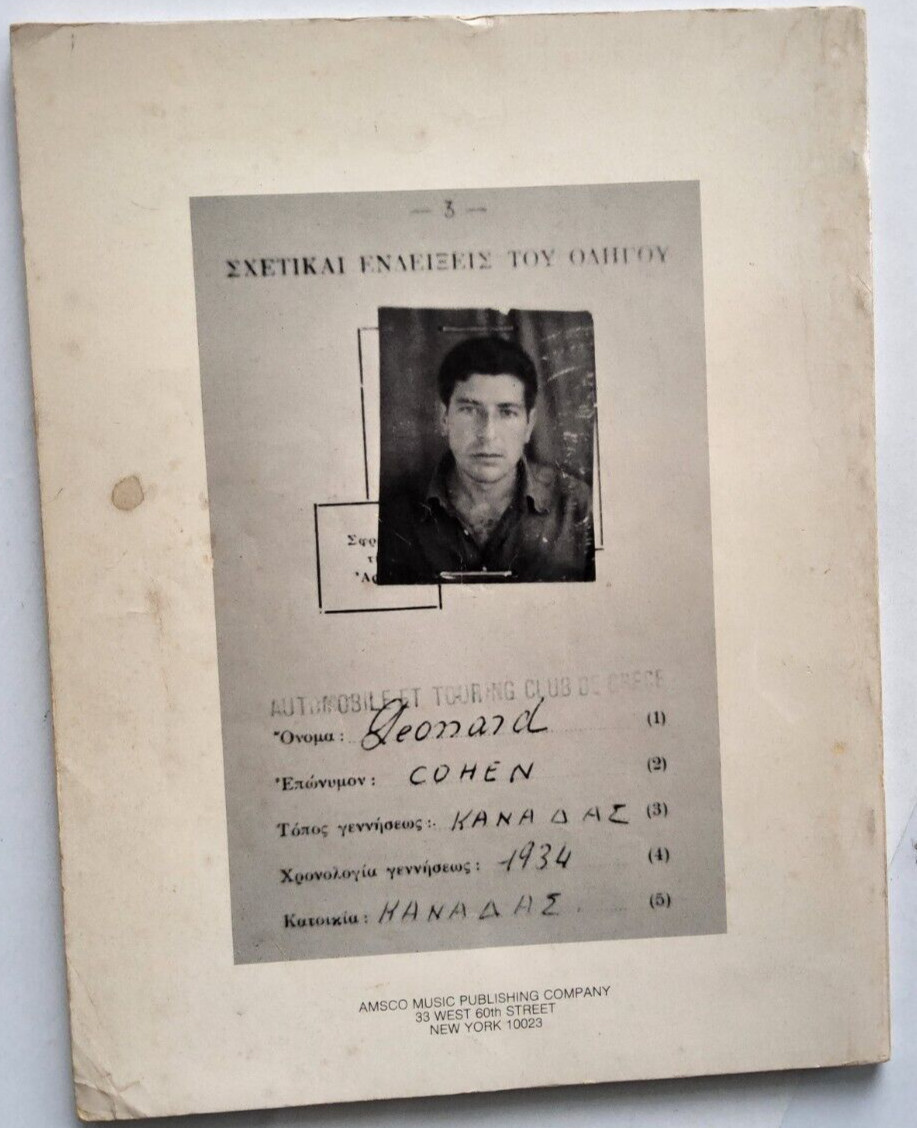 — 3 —
ΣΧΕΤΙΚΑΙ ΕΝΔΕΙΞΕΙΣ ΤΟΥ ΟΔΗΓΟΥ
AUTOMOBILE ET TOURING CLUB DE GRECE
Ὄνομα : Leonard (1)
Ἐπώνυμον : COHEN (2)
Τόπος γεννήσεως : ΚΑΝΑΔΑΣ (3)
Χρονολογία γεννήσεως : 1934 (4)
Κατοικία : ΚΑΝΑΔΑΣ (5)
AMSCO MUSIC PUBLISHING COMPANY
33 WEST 60th STREET
NEW YORK 10023